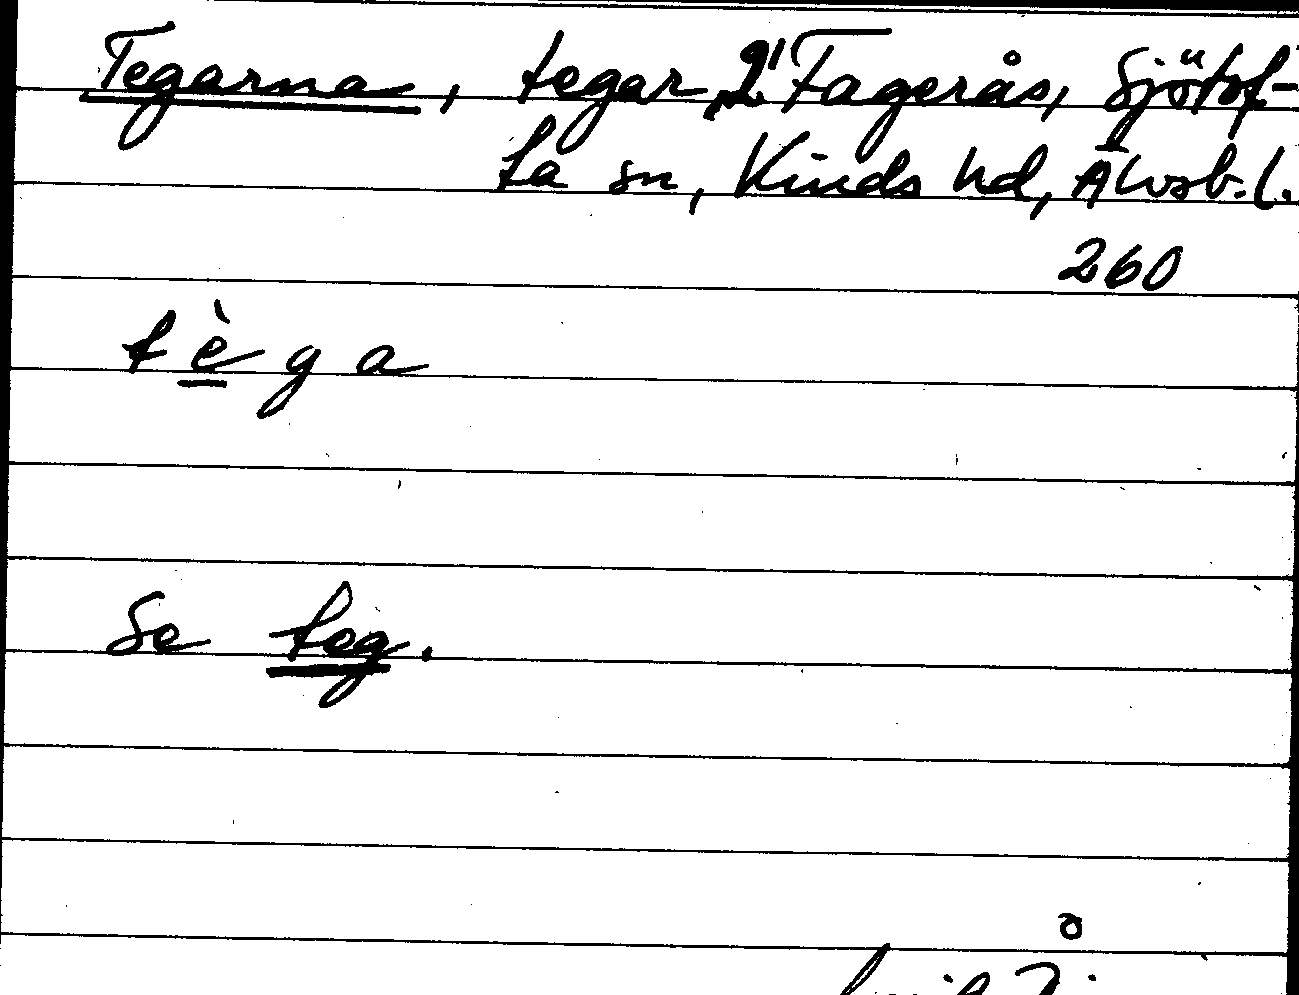 Tegarna, tegar, 2' Fagerås, Sjötof-
ta sn, Kinds hd, Älvsb. l.
260
tèga
Se teg.